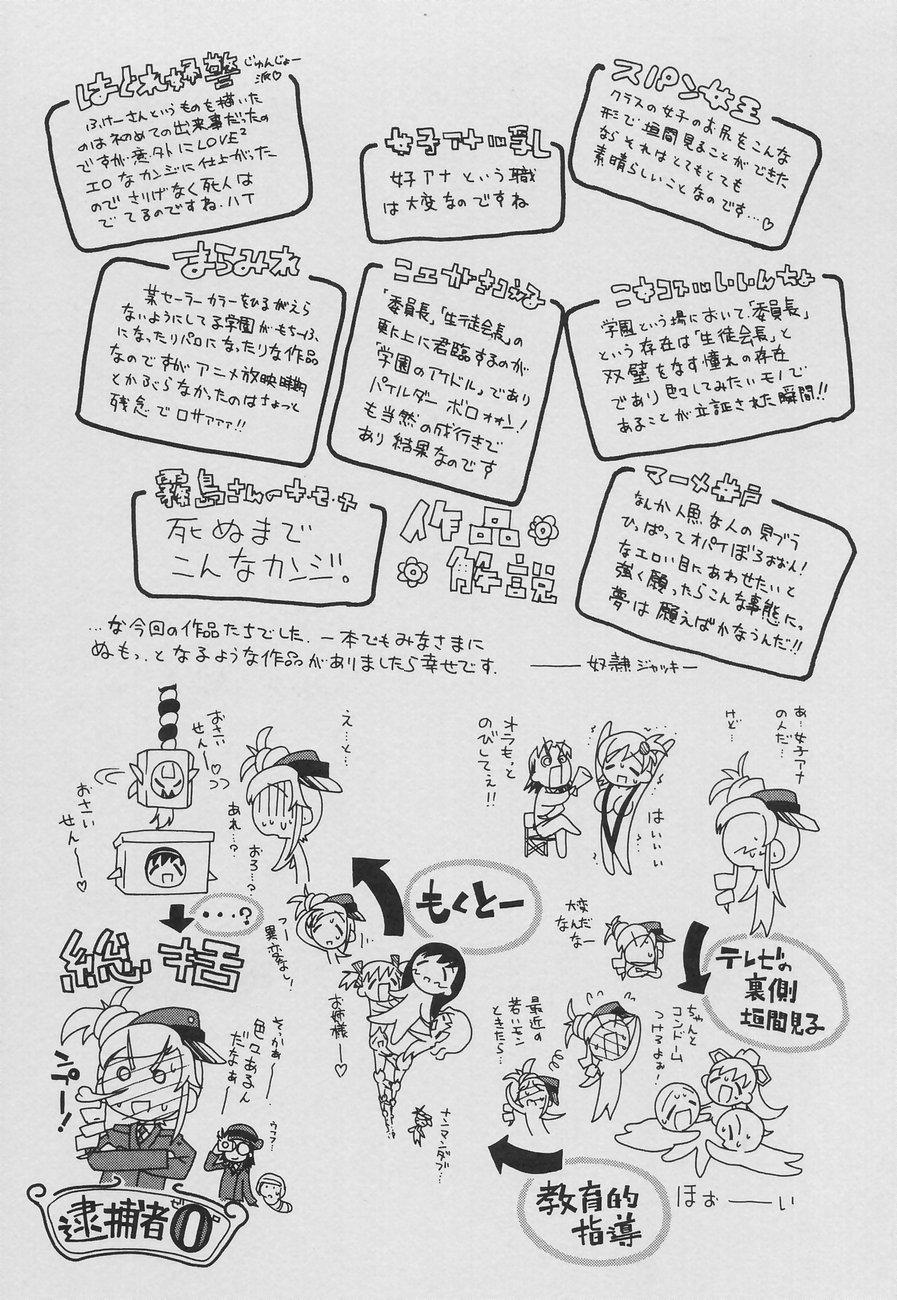 はぐれ婦警
じゅんじょー
派♡
ふけーさんというものを描いた
のは初めての出来事だったの
ですが意外にLOVE²
エロなカンジに仕上がった
のでさりげなく死人は
でてるのですね。ハイ
女子アナル乳し
女子アナという職
は大変なのですね
スパン女王
クラスの女子のお尻をこんな
形で垣間見ることができた
ならそれはとてもとても
素晴らしいことなのです…♡
まらみれ
某セーラーカラーをひるがえら
ないようにしてる学園がもちーふ
になったりパロになったりな作品
なのですがアニメ放映時期
とかぶらなかったのはちょっと
残念でロサァァァ!!
コエがきこえる
「委員長」「生徒会長」の
更に上に君臨するのが
「学園のアイドル」であり
パイルダーボロォオン!
も当然の成行きで
あり結果なのです
学園という場において、「委員長」
という存在は「生徒会長」と
双璧をなす憧れの存在
であり色々してみたいモノで
あることが立証された瞬間!!
霧島さんのキ・モ・チ
死ぬまで
こんなカンジ。
マーメ井戸
なんか人魚な人の貝ブラ
ひっぱってオパイぼろぉおん!
なエロい目にあわせたいと
強く願ったらこんな事態に。
夢は願えばかなうんだ!!
作品
解説
…な今回の作品たちでした。一本でもみなさまに
ぬもっ、となるような作品がありましたら幸せです。
――奴隷ジャッキー
あ…女子アナ
のんだ…
けど…
オラもっと
のびしてえ!!
はいいい
え…と…
あれ…?
おろ…?
おさい
せんー♡
おさい
せんー♡
テレビの
裏側
垣間見子
大変だ
なんなー
ちゃんと
コンドーム
つけるよぉ!
ほぉーーい
教育的
指導
最近の
若いモン
ときたら…
ナンマンダブ…
お姉様ー♡
もくとー
っ…
異変なし!
…?
総括
そっかぁー
色々あるん
だなぁー
ウフフ…
ンパー!
逮捕者0
ゼロ